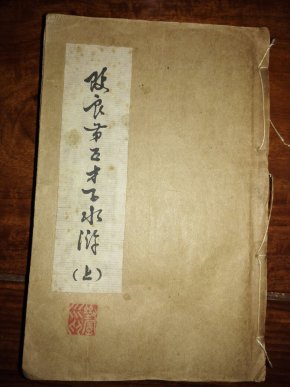 改良第五才子水浒
(上)